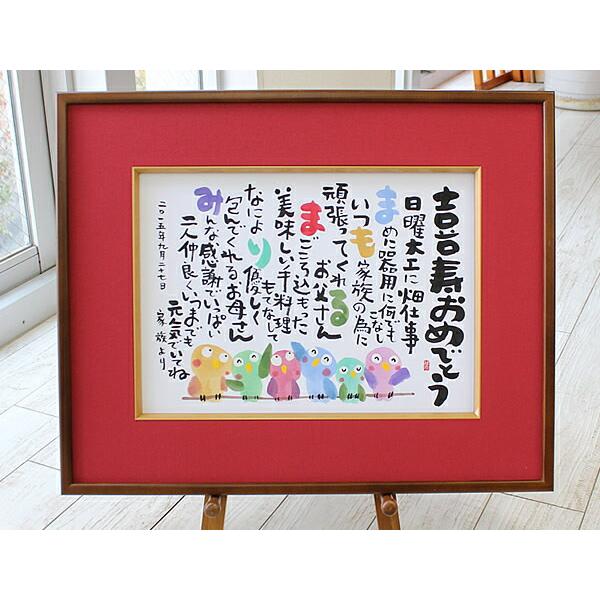 喜寿おめでとう
日曜大工に畑仕事
まめに器用に何でも
こなし
いつも家族の為に
頑張ってくれる
お父さん
まごころ込もった
美味しい手料理
もてなして
なにより優しく
包んでくれるお母さん
みんな感謝でいっぱい
二人仲良くいつまでも
元気でいてね
二〇一五年九月二十七日
家族より